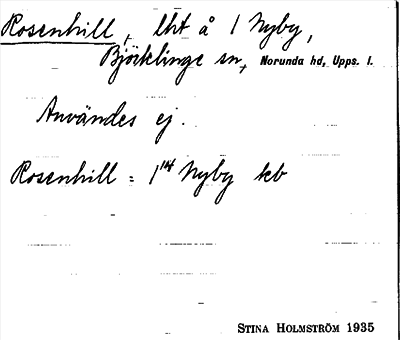 Rosenhill, lht å 1 Nyby,
Björklinge sn, Norunda hd, Upps. l.
Användes ej.
Rosenhill = 1¹⁴ Nyby kb
STINA HOLMSTRÖM 1935